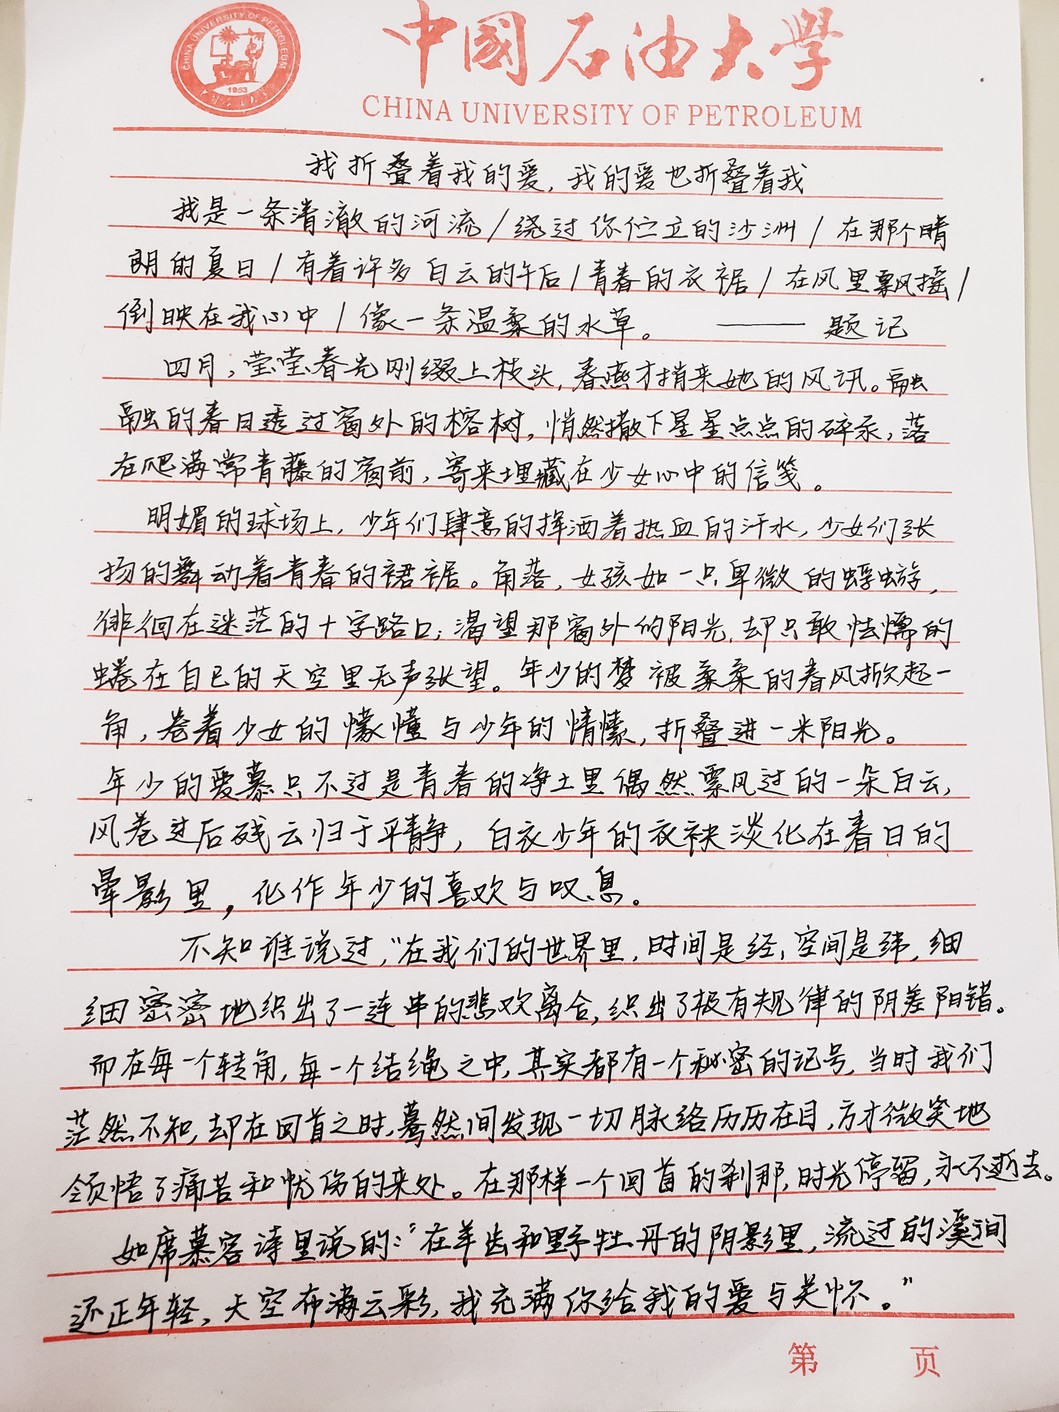 CHINA UNIVERSITY OF PETROLEUM
1953
中国石油大学
CHINA UNIVERSITY OF PETROLEUM
我折叠着我的爱，我的爱也折叠着我
我是一条清澈的河流/绕过你伫立的沙洲/在那个晴
朗的夏日/有着许多白云的午后/青春的衣裾/在风里飘摇/
倒映在我心中/像一条温柔的水草。——题记
四月，莹莹春光刚缀上枝头，春燕才捎来她的风讯。融
融的春日透过窗外的榕树，悄然撒下星星点点的碎汞，落
在爬满常青藤的窗前，寄来埋藏在少女心中的信笺。
明媚的球场上，少年们肆意的挥洒着热血的汗水，少女们张
扬的舞动着青春的裙裾。角落，女孩如一只卑微的蜉蝣，
徘徊在迷茫的十字路口；渴望那窗外的阳光，却只敢怯懦的
蜷在自己的天空里无声张望。年少的梦被柔柔的春风掀起一
角，卷着少女的懞懂与少年的情愫，折叠进一米阳光。
年少的爱慕只不过是青春的净土里偶然飘过的一朵白云，
风卷过后残云归于平静，白衣少年的衣袂淡化在春日的
晕影里，化作年少的喜欢与叹息。
不知谁说过，“在我们的世界里，时间是经，空间是纬，细
细密密地织出了一连串的悲欢离合，织出了极有规律的阴差阳错。
而在每一个转角，每一个结绳之中，其实都有一个秘密的记号，当时我们
茫然不知，却在回首之时，蓦然间发现一切脉络历历在目，方才微笑地
领悟了痛苦和忧伤的来处。在那样一个回首的刹那，时光停留，永不逝去。
如席慕容诗里说的：“在羊齿和野牡丹的阴影里，流过的溪涧
还正年轻，天空布满云彩，我充满你给我的爱与关怀。”
第 页